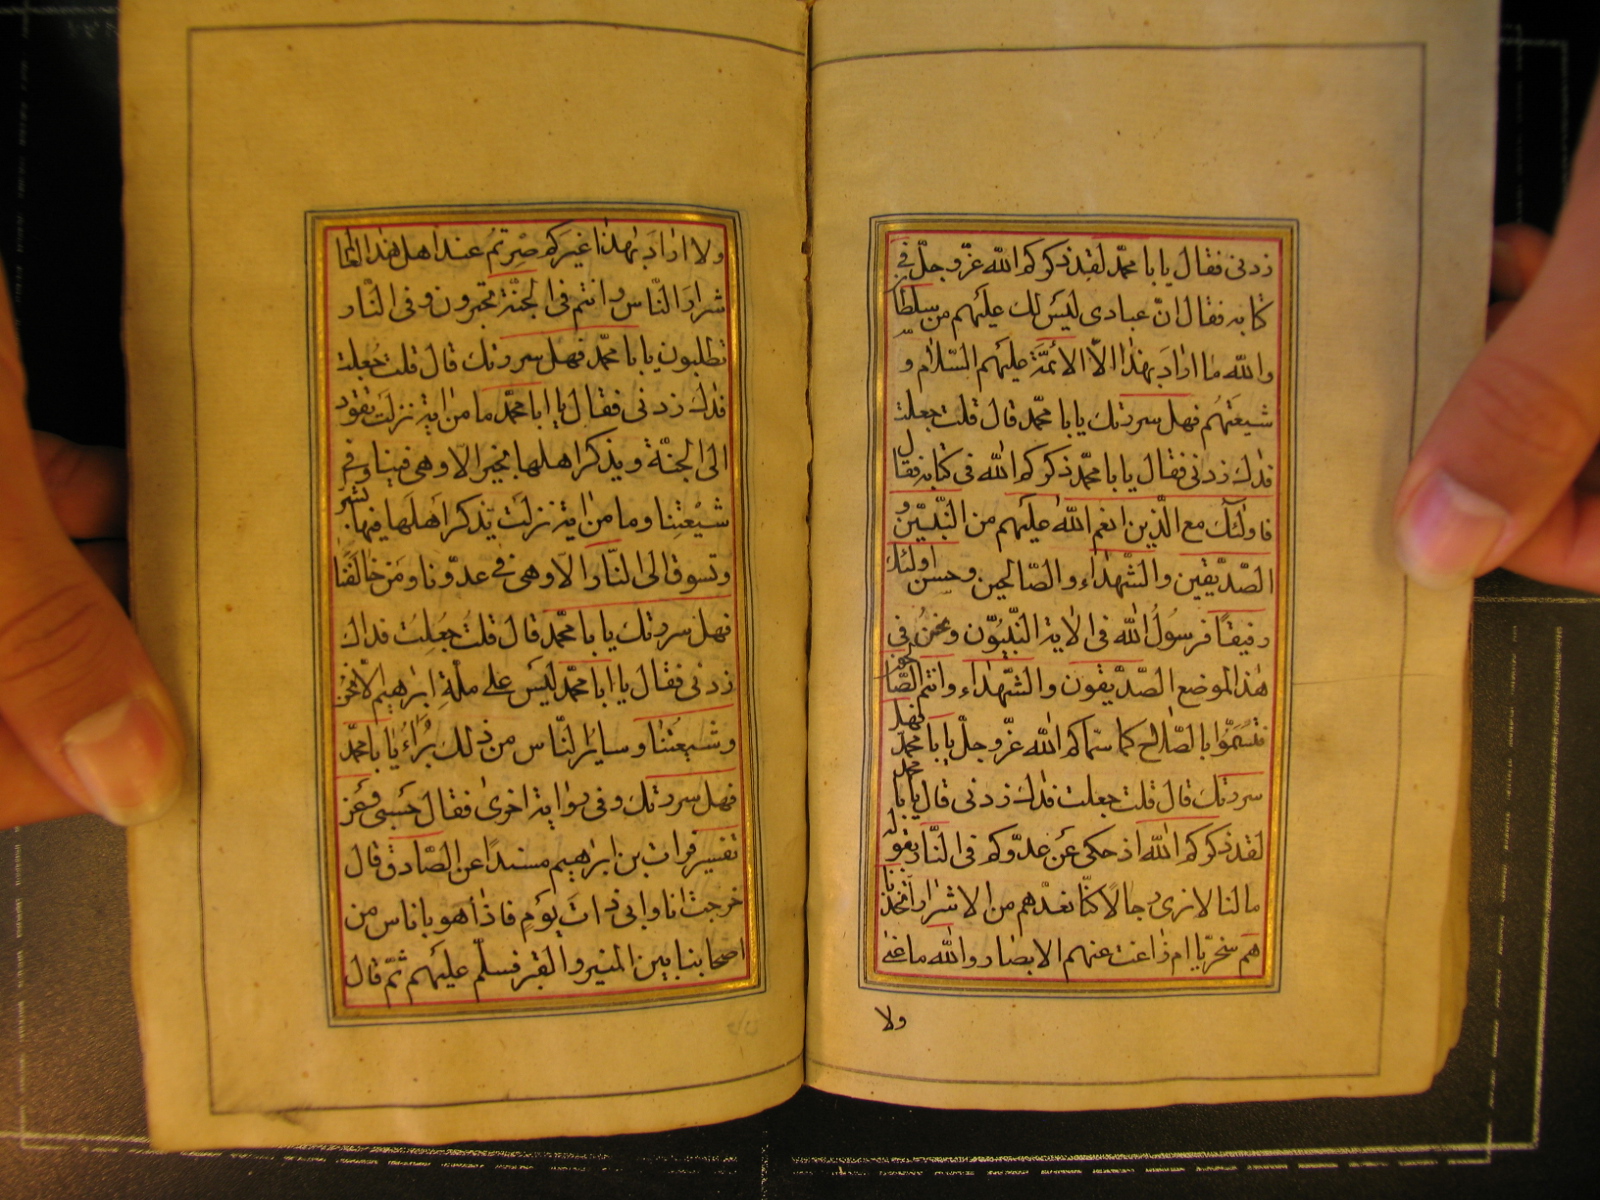 زدنى فقال يا با محمّد لقد ذكركم اللّه عزّ و جلّ فى
كتابه فقال انّ عبادى ليس لك عليهم من سلطا
ن
واللّه ما اراد بهذا الّا الائمّة عليهم السّلام و
شيعتهم فهل سررتك يا با محمّد قال قلت جعلت
فداك زدنى فقال يا با محمّد ذكركم اللّه فى كتابه فقال
فاولئك مع الّذين انعم اللّه عليهم من النّبيّين و
الصّدّيقين والشّهداء والصّالحين وحسن اولئك
رفيقًا فرسولُ اللّه فى الاية النّبيّون ونحن فى
هذا الموضع الصّدّيقون والشّهداء وانتم الصّالحون
فتسمّوا بالصّلاح كما سمّاكم اللّه عزّ وجلّ يا با محمّد فهل
سررتك قال قلت جعلت فداك زدنى قال يا با محمد
لقد ذكركم اللّه اذ حكى عن عدّوكم فى النّار بقوله
ما لنا لا نرى رجالًا كنّا نعدّهم من الاشرار اتّخذنا
هم سخريّا ام زاغت عنهم الابصار واللّه ما عنى
ولا
ولا اراد بهذا غيركم صرتم عند اهل هذا العالم
شرار النّاس وانتم فى الجنّة تحبرون وفى النّار
تطلبون يا با محمّد فهل سررتك قال قلت جُعلت
فداك زدنى فقال يا ابا محمّد ما من اية نزلت تقود
الى الجنّة ويذكر اهلها بخير الا وهى فينا وفى
شيْعتِنا وما من اية نزلت يذكر اهلها فيها بشرّ
وتسوق الى النّار الا وهى فى عدّونا ومن خالفنا
فهل سررتك يا با محمّد قال قلت جُعلِت فداك
زدنى فقال يا ابا محمّد ليس على ملّةِ ابرهيم الّا نحن
وشيعتنا وساير النّاس من ذلك بُرَاءُ يا با محمّد
فهل سررتك وفى رواية اخرى فقال حَسبى وعن
تفسير فرات بن ابرهيم مسندًا عن الصّادق قال
خرجت انا وابى ذات يومٍ فاذا هو باناس من
اصحابنا بين المنبر والقبر فسلّم عليهم ثمّ قال